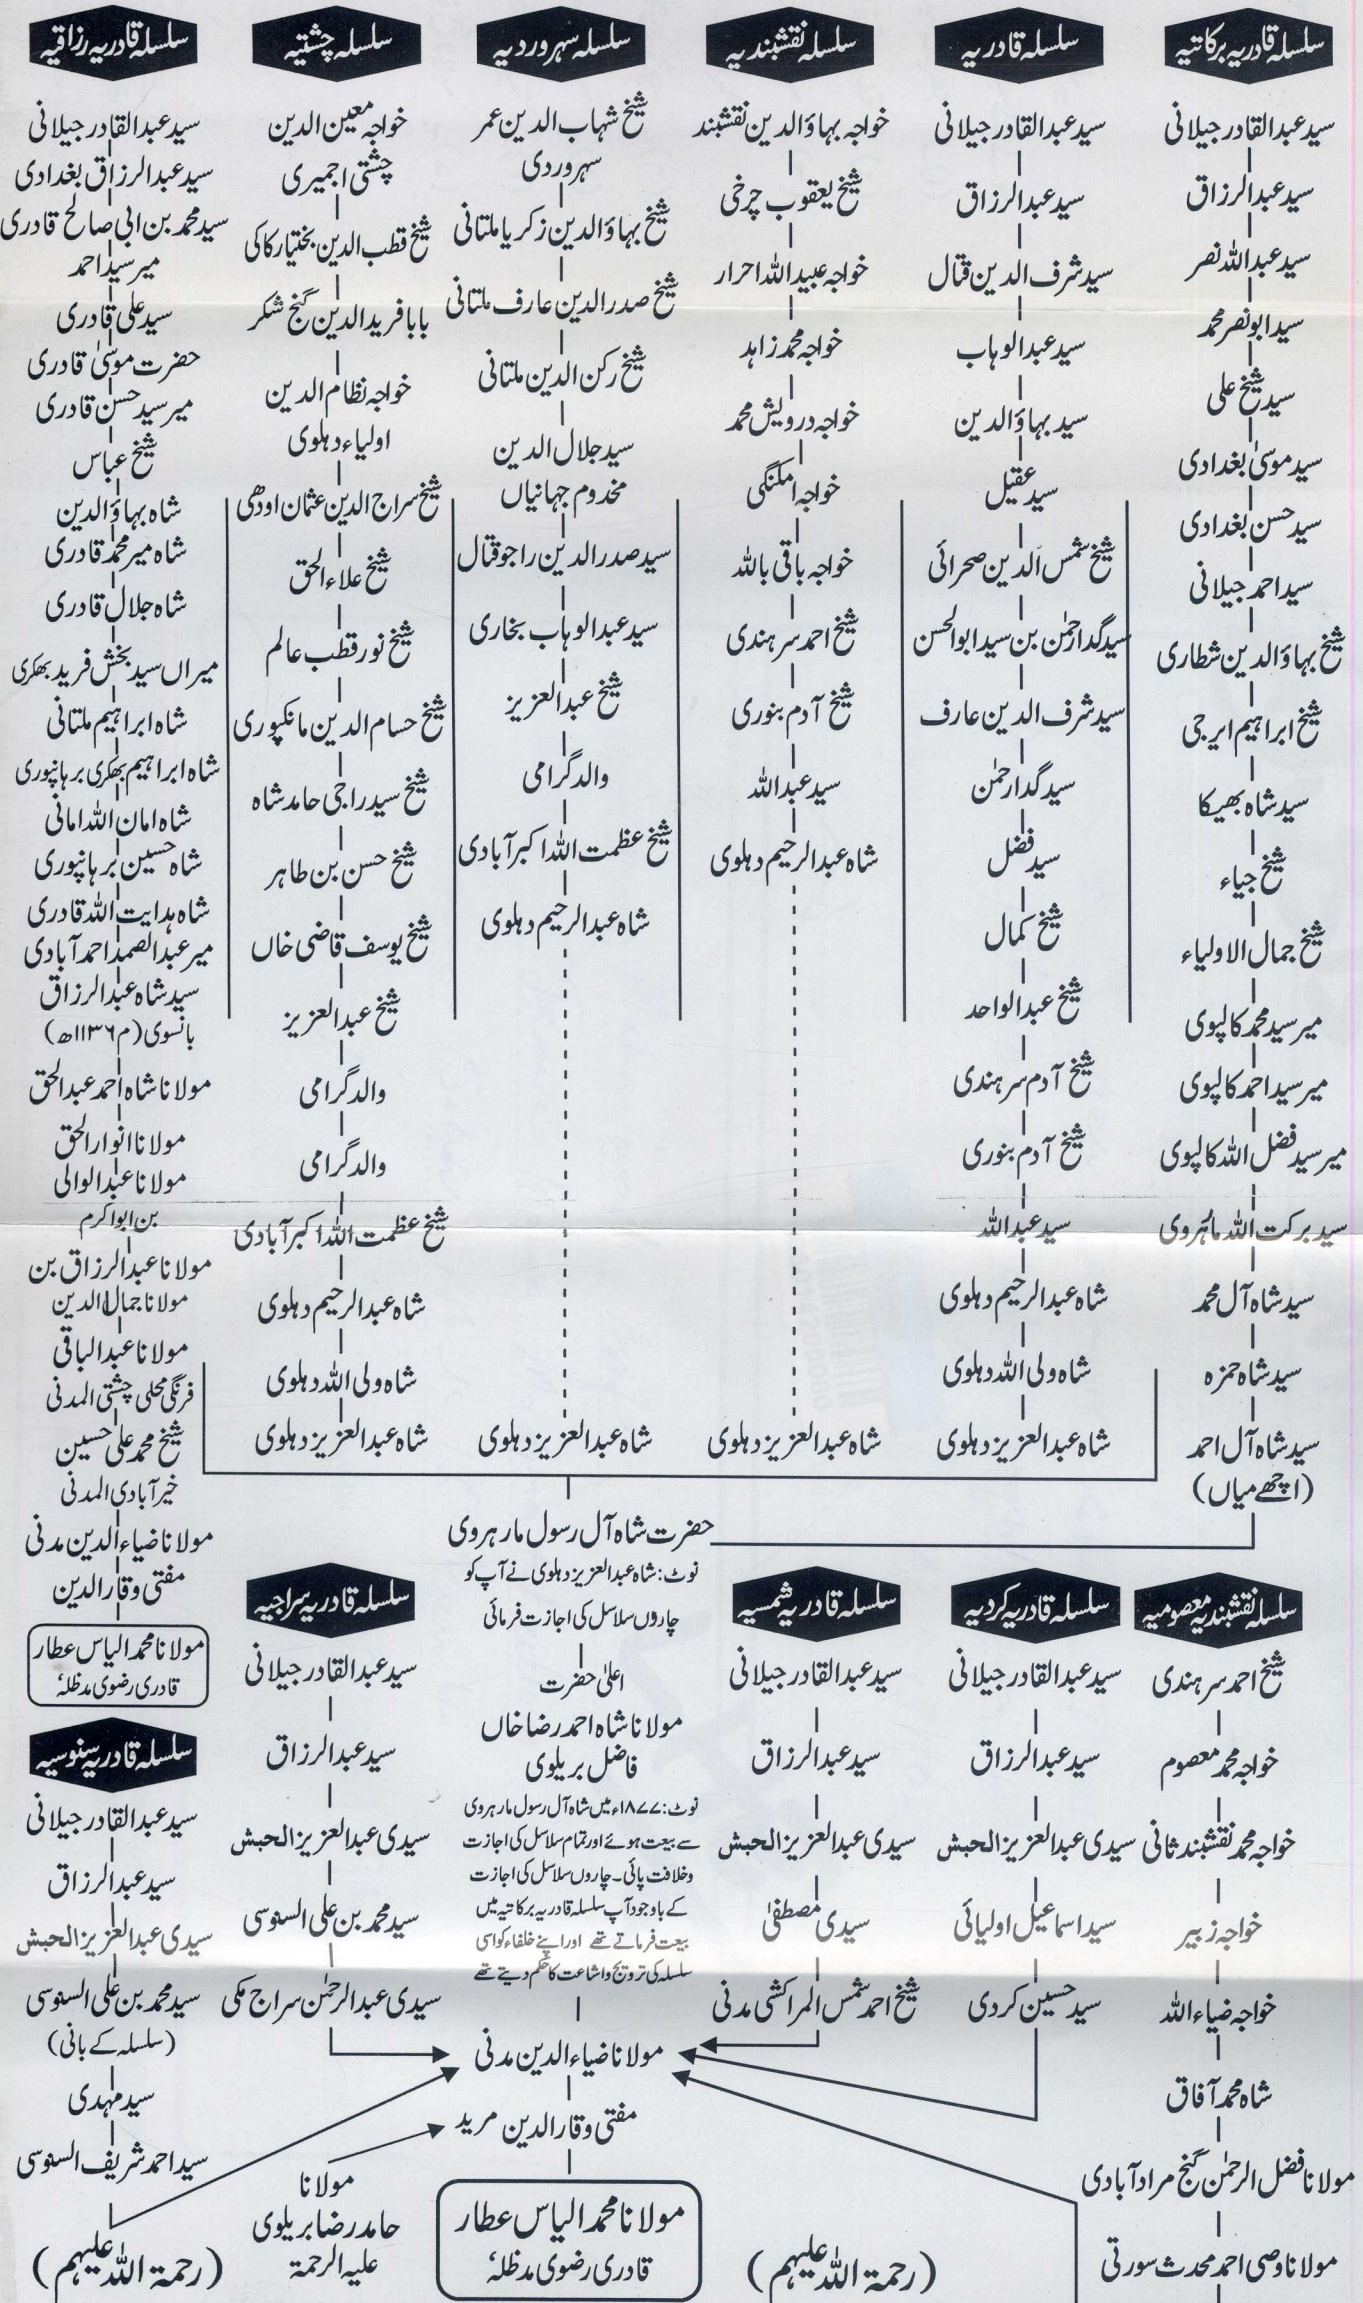 سلسلہ قادریہ برکاتیہ
سید عبدالقادر جیلانی
سید عبدالرزاق
سید عبداللہ نصر
سید ابو نصر محمد
سید شیخ علی
سید موسیٰ بغدادی
سید حسن بغدادی
سید احمد جیلانی
شیخ بہاؤالدین شطاری
شیخ ابراہیم ایرجی
سید شاہ بھیکا
شیخ جیاء
شیخ جمال الاولیاء
میر سید محمد کالپوی
میر سید احمد کالپوی
میر سید فضل اللہ کالپوی
سید برکت اللہ مارہروی
سید شاہ آل محمد
سید شاہ حمزہ
سید شاہ آل احمد
(اچھے میاں)
سلسلہ قادریہ
سید عبدالقادر جیلانی
سید عبدالرزاق
سید شرف الدین قتال
سید عبدالوہاب
سید بہاؤالدین
سید عقیل
شیخ شمس الدین صحرائی
سید گدارحمٰن بن سید ابوالحسن
سید شرف الدین عارف
سید گدارحمٰن
سید فضل
شیخ کمال
شیخ عبدالواحد
شیخ آدم سرہندی
شیخ آدم بنوری
سید عبداللہ
شاہ عبدالرحیم دہلوی
شاہ ولی اللہ دہلوی
شاہ عبدالعزیز دہلوی
سلسلہ نقشبندیہ
خواجہ بہاؤالدین نقشبند
شیخ یعقوب چرخی
خواجہ عبیداللہ احرار
خواجہ محمد زاہد
خواجہ درویش محمد
خواجہ امکنگی
خواجہ باقی باللہ
شیخ احمد سرہندی
شیخ آدم بنوری
سید عبداللہ
شاہ عبدالرحیم دہلوی
شاہ عبدالعزیز دہلوی
سلسلہ سہروردیہ
شیخ شہاب الدین عمر
سہروردی
شیخ بہاؤالدین زکریا ملتانی
شیخ صدرالدین عارف ملتانی
شیخ رکن الدین ملتانی
سید جلال الدین
مخدوم جہانیاں
سید صدرالدین راجو قتال
سید عبدالوہاب بخاری
شیخ عبدالعزیز
والد گرامی
شیخ عظمت اللہ اکبرآبادی
شاہ عبدالرحیم دہلوی
شاہ عبدالعزیز دہلوی
سلسلہ چشتیہ
خواجہ معین الدین
چشتی اجمیری
شیخ قطب الدین بختیار کاکی
بابا فرید الدین گنج شکر
خواجہ نظام الدین
اولیاء دہلوی
شیخ سراج الدین عثمان اودھی
شیخ علاء الحق
شیخ نور قطب عالم
شیخ حسام الدین مانکپوری
شیخ سید راجی حامد شاہ
شیخ حسن بن طاہر
شیخ یوسف قاضی خاں
شیخ عبدالعزیز
والد گرامی
والد گرامی
شیخ عظمت اللہ اکبرآبادی
شاہ عبدالرحیم دہلوی
شاہ ولی اللہ دہلوی
شاہ عبدالعزیز دہلوی
سلسلہ قادریہ رزاقیہ
سید عبدالقادر جیلانی
سید عبدالرزاق بغدادی
سید محمد بن ابی صالح قادری
میر سید احمد
سید علی قادری
حضرت موسیٰ قادری
میر سید حسن قادری
شیخ عباس
شاہ بہاؤالدین
شاہ میر محمد قادری
شاہ جلال قادری
میراں سید بخش فرید بھکری
شاہ ابراہیم ملتانی
شاہ ابراہیم بھکری برہانپوری
شاہ امان اللہ امانی
شاہ حسین برہانپوری
شاہ ہدایت اللہ قادری
میر عبدالصمد احمدآبادی
سید شاہ عبدالرزاق
بانسوی (م ۱۱۳۶ھ)
مولانا شاہ احمد عبدالحق
مولانا انوارالحق
مولانا عبدالوالی
بن ابو اکرم
مولانا عبدالرزاق بن
مولانا جمال الدین
مولانا عبدالباقی
فرنگی محلی چشتی المدنی
شیخ محمد علی حسین
خیرآبادی المدنی
مولانا ضیاء الدین مدنی
مفتی وقارالدین
مولانا محمد الیاس عطار
قادری رضوی مدظلہٗ
حضرت شاہ آل رسول مارہروی
نوٹ: شاہ عبدالعزیز دہلوی نے آپ کو
چاروں سلاسل کی اجازت فرمائی
اعلیٰ حضرت
مولانا شاہ احمد رضا خاں
فاضل بریلوی
نوٹ: ۱۸۷۷ء میں شاہ آل رسول مارہروی
سے بیعت ہوئے اور تمام سلاسل کی اجازت
وخلافت پائی۔ چاروں سلاسل کی اجازت
کے باوجود آپ سلسلہ قادریہ برکاتیہ میں
بیعت فرماتے تھے اور اپنے خلفاء کو اسی
سلسلہ کی ترویج واشاعت کا حکم دیتے تھے
مولانا ضیاء الدین مدنی
مفتی وقارالدین مرید
مولانا محمد الیاس عطار
قادری رضوی مدظلہٗ
سلسلہ نقشبندیہ معصومیہ
شیخ احمد سرہندی
خواجہ محمد معصوم
خواجہ محمد نقشبند ثانی
خواجہ زبیر
خواجہ ضیاء اللہ
شاہ محمد آفاق
مولانا فضل الرحمٰن گنج مرادآبادی
مولانا وصی احمد محدث سورتی
سلسلہ قادریہ کردیہ
سید عبدالقادر جیلانی
سید عبدالرزاق
سیدی عبدالعزیز الحبش
سید اسماعیل اولیائی
سید حسین کردی
سلسلہ قادریہ شمسیہ
سید عبدالقادر جیلانی
سید عبدالرزاق
سیدی عبدالعزیز الحبش
سیدی مصطفیٰ
شیخ احمد شمس المراکشی مدنی
(رحمۃ اللہ علیہم)
سلسلہ قادریہ سراجیہ
سید عبدالقادر جیلانی
سید عبدالرزاق
سیدی عبدالعزیز الحبش
سید محمد بن علی السنوسی
سیدی عبدالرحمٰن سراج مکی
مولانا
حامد رضا بریلوی
علیہ الرحمۃ
سلسلہ قادریہ سنوسیہ
سید عبدالقادر جیلانی
سید عبدالرزاق
سیدی عبدالعزیز الحبش
سید محمد بن علی السنوسی
(سلسلہ کے بانی)
سید مہدی
سید احمد شریف السنوسی
(رحمۃ اللہ علیہم)